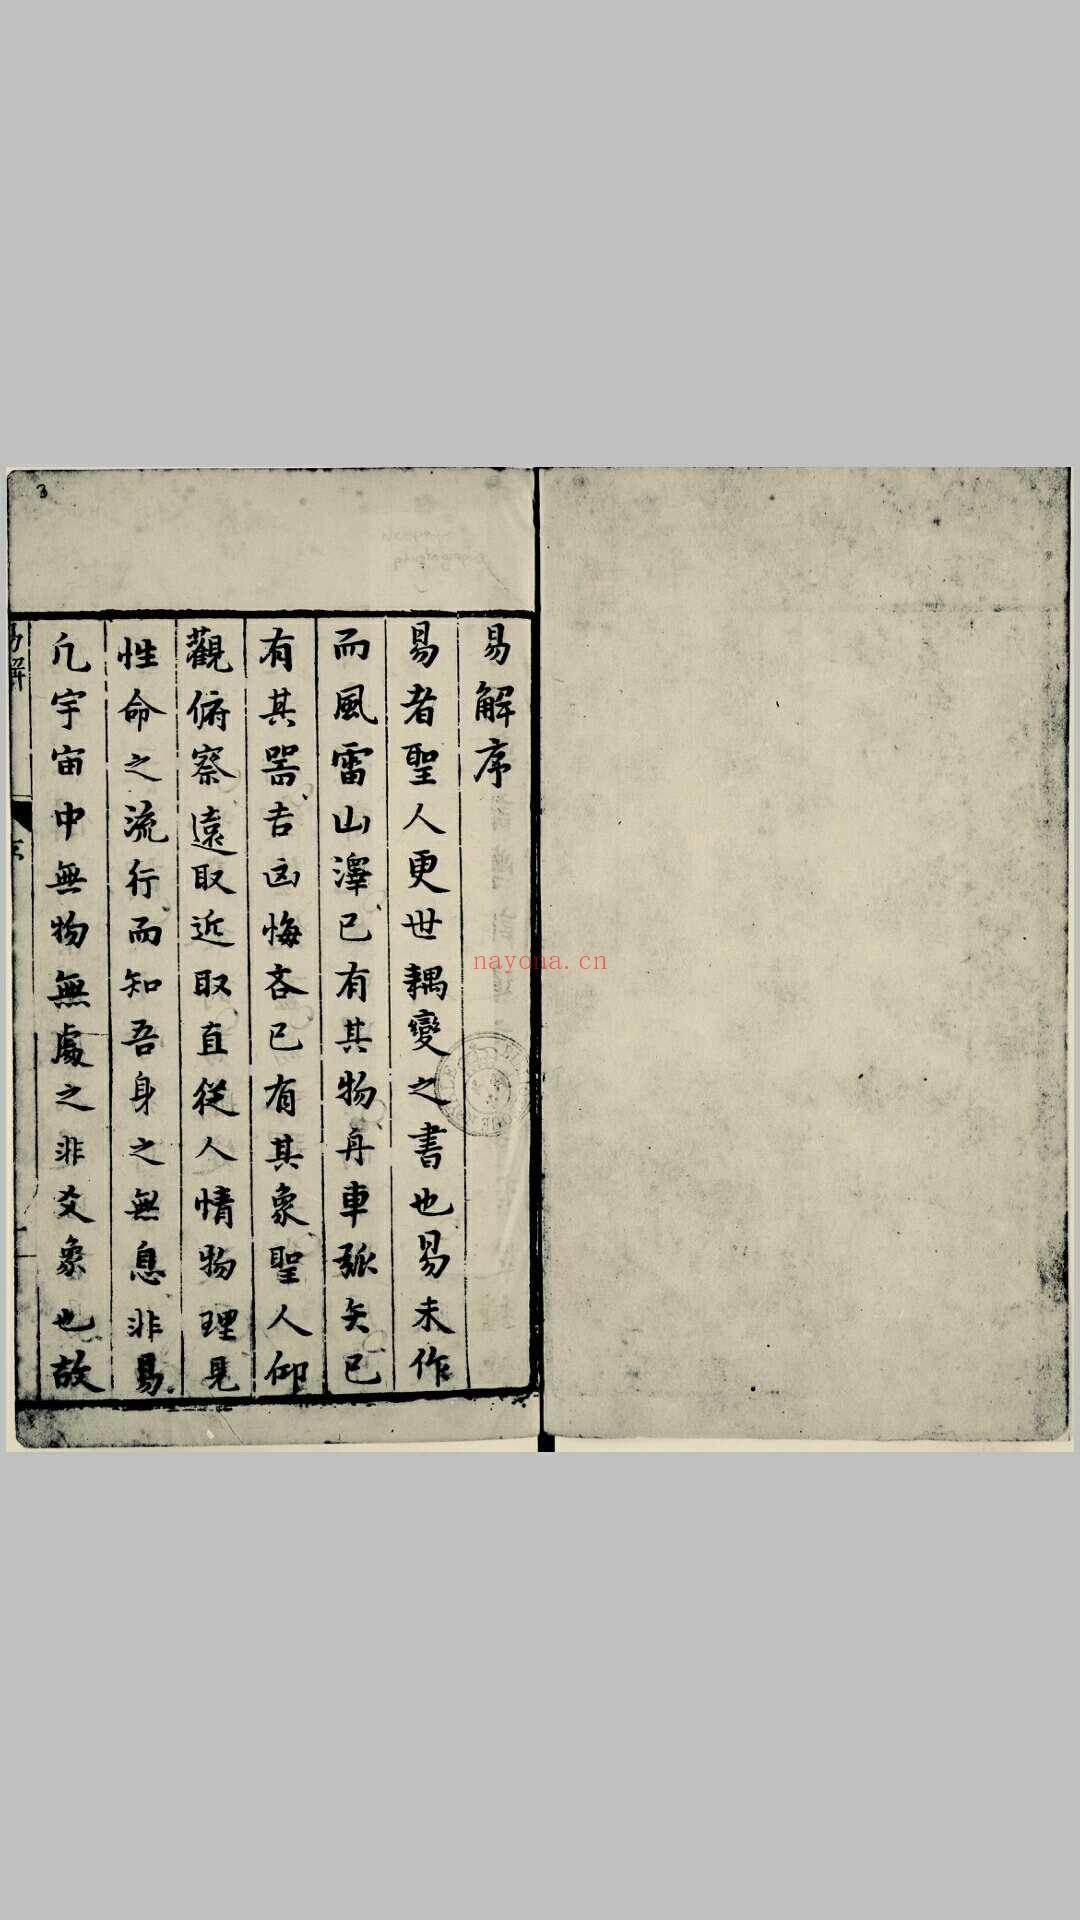 易解序
易者聖人更世耦變之書也易未作
而風雷山澤已有其物舟車弧矢已
有其器吉凶悔吝已有其象聖人仰
觀俯察遠取近取直從人情物理見
性命之流行而知吾身之無息非易
凡宇宙中無物無處之非爻象也故
易解
序
3
nayona.cn